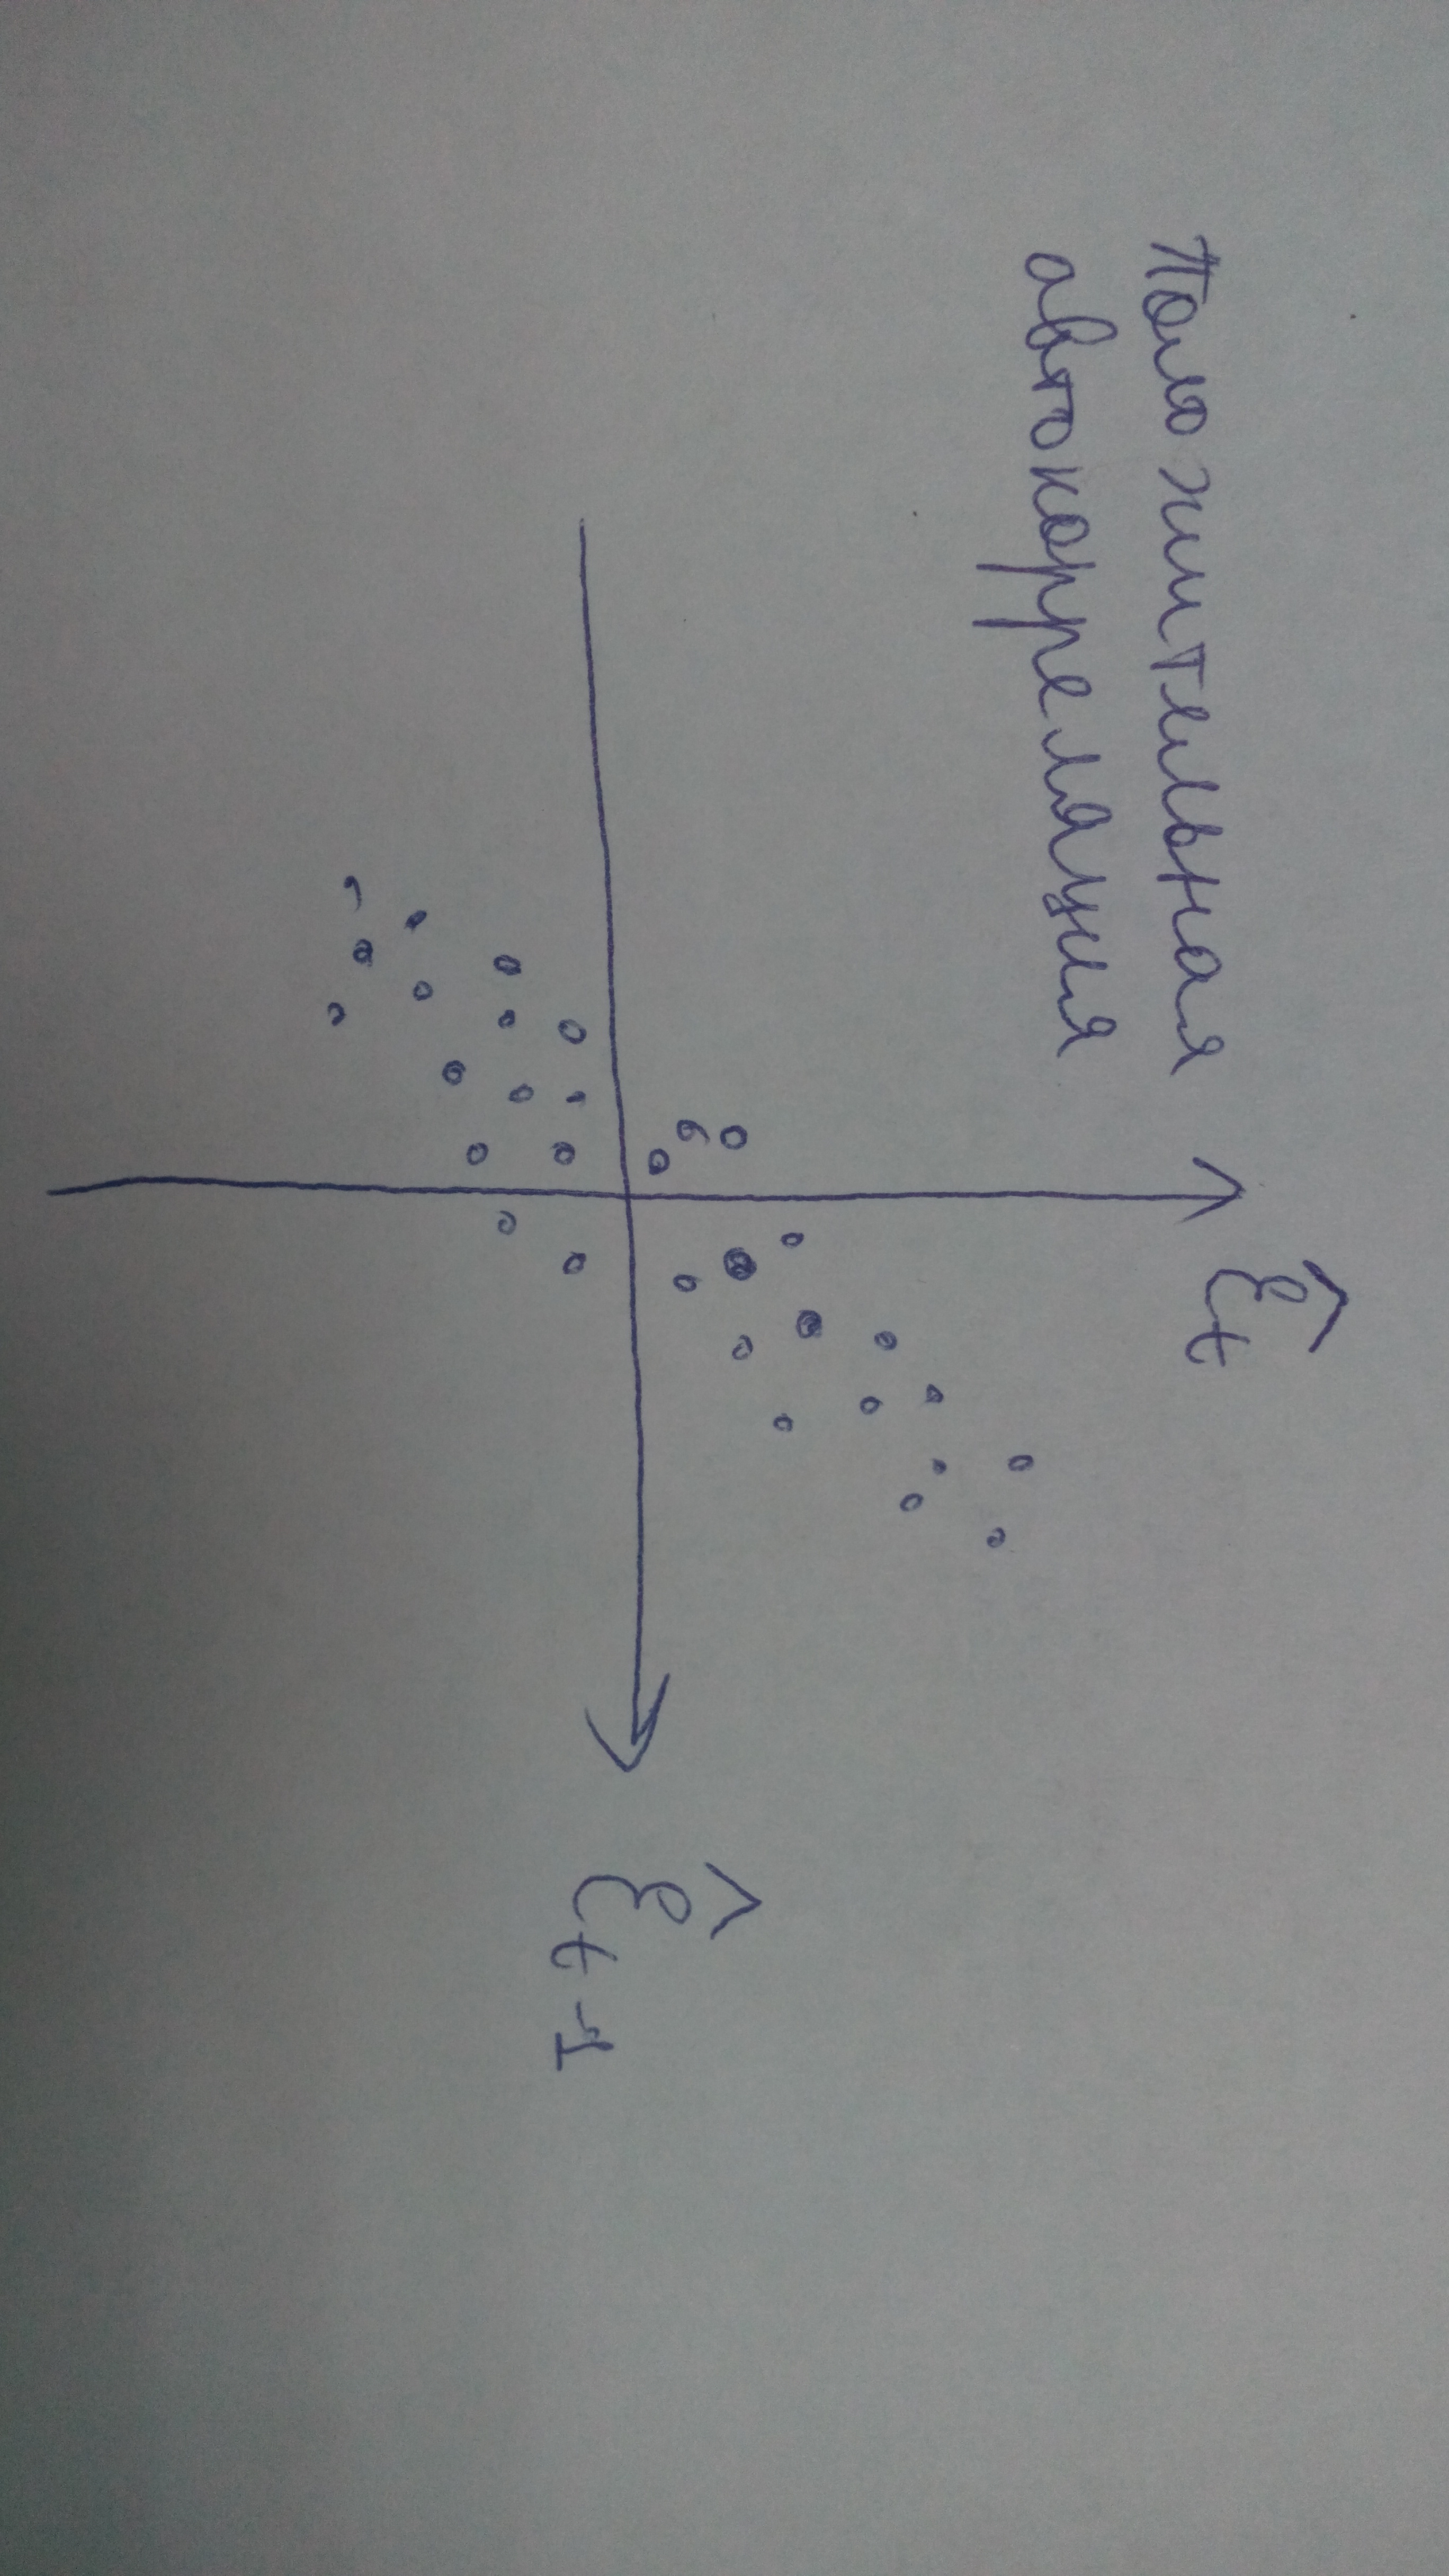 Положительная
автокорреляция
ε̂t
ε̂t-1